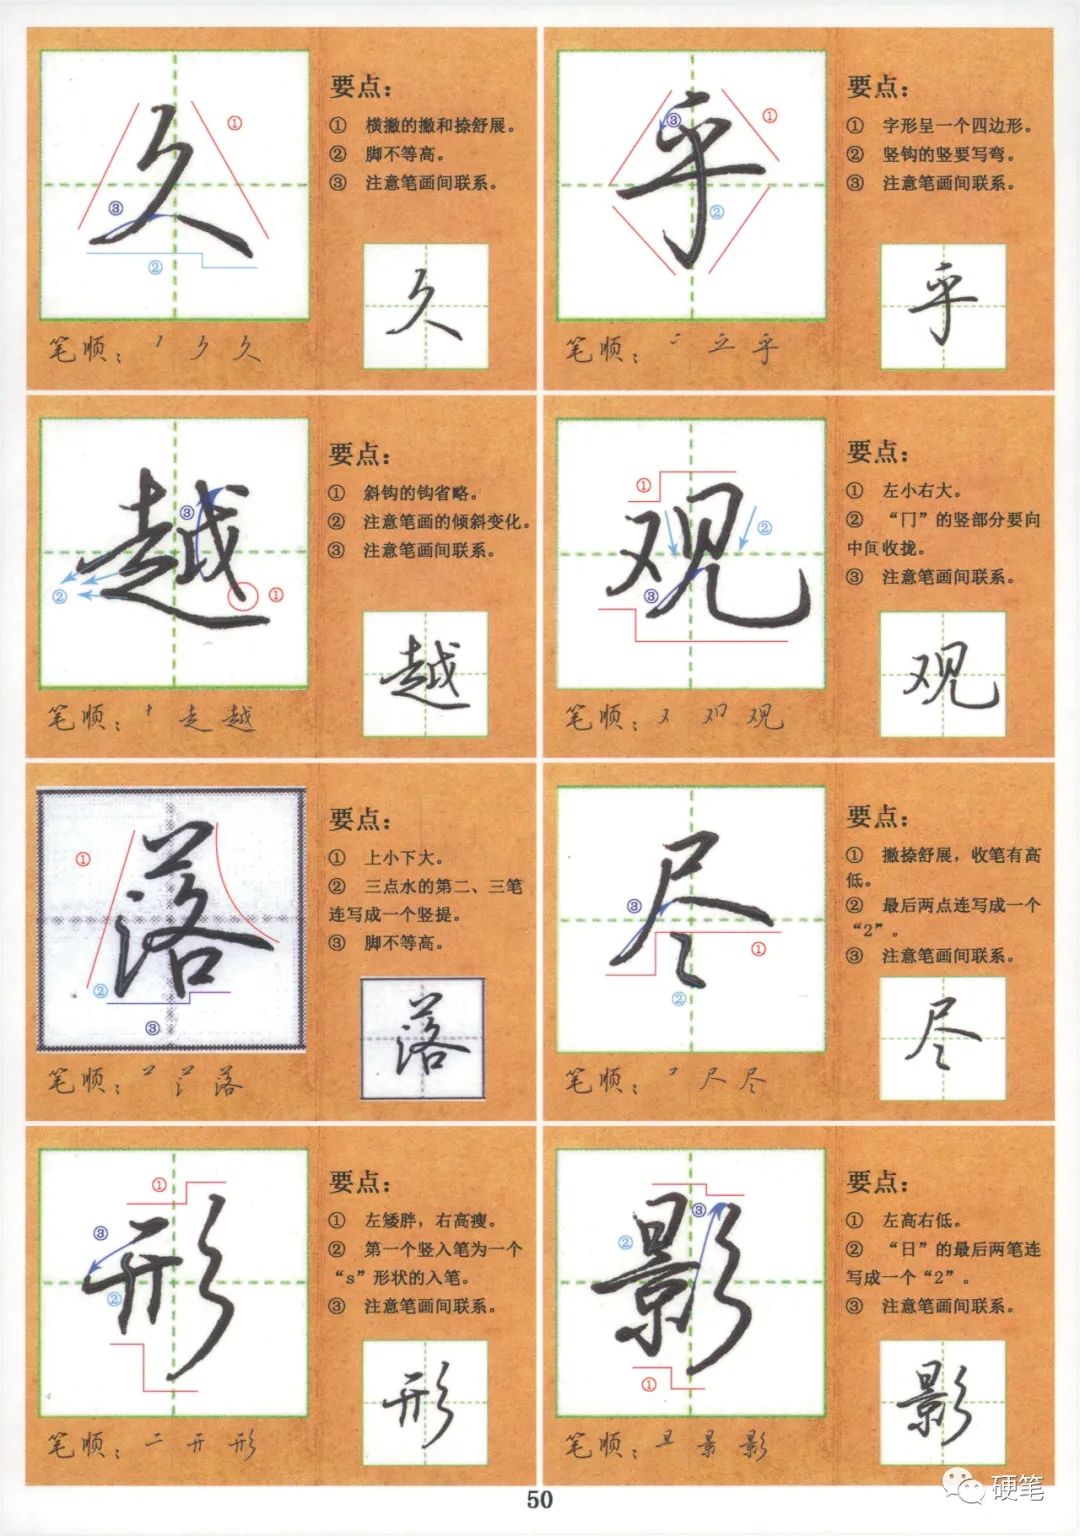 久
要点：
① 横撇的撇和捺舒展。
② 脚不等高。
③ 注意笔画间联系。
①
②
③
久
笔顺：㇇ 久
乎
要点：
① 字形呈一个四边形。
② 竖钩的竖要写弯。
③ 注意笔画间联系。
①
②
③
乎
笔顺：乎
越
要点：
① 斜钩的钩省略。
② 注意笔画的倾斜变化。
③ 注意笔画间联系。
①
②
③
越
笔顺：十 走 越
观
要点：
① 左小右大。
② “冂”的竖部分要向
中间收拢。
③ 注意笔画间联系。
①
②
③
观
笔顺：又 观
落
要点：
① 上小下大。
② 三点水的第二、三笔
连写成一个竖提。
③ 脚不等高。
①
②
③
落
笔顺：落
尽
要点：
① 撇捺舒展，收笔有高
低。
② 最后两点连写成一个
“2”。
③ 注意笔画间联系。
①
②
③
尽
笔顺：尺 尽
形
要点：
① 左矮胖，右高瘦。
② 第一个竖入笔为一个
“s”形状的入笔。
③ 注意笔画间联系。
①
②
③
形
笔顺：二 开 形
影
要点：
① 左高右低。
② “日”的最后两笔连
写成一个“2”。
③ 注意笔画间联系。
①
②
③
①
影
笔顺：旦 景 影
50
硬笔